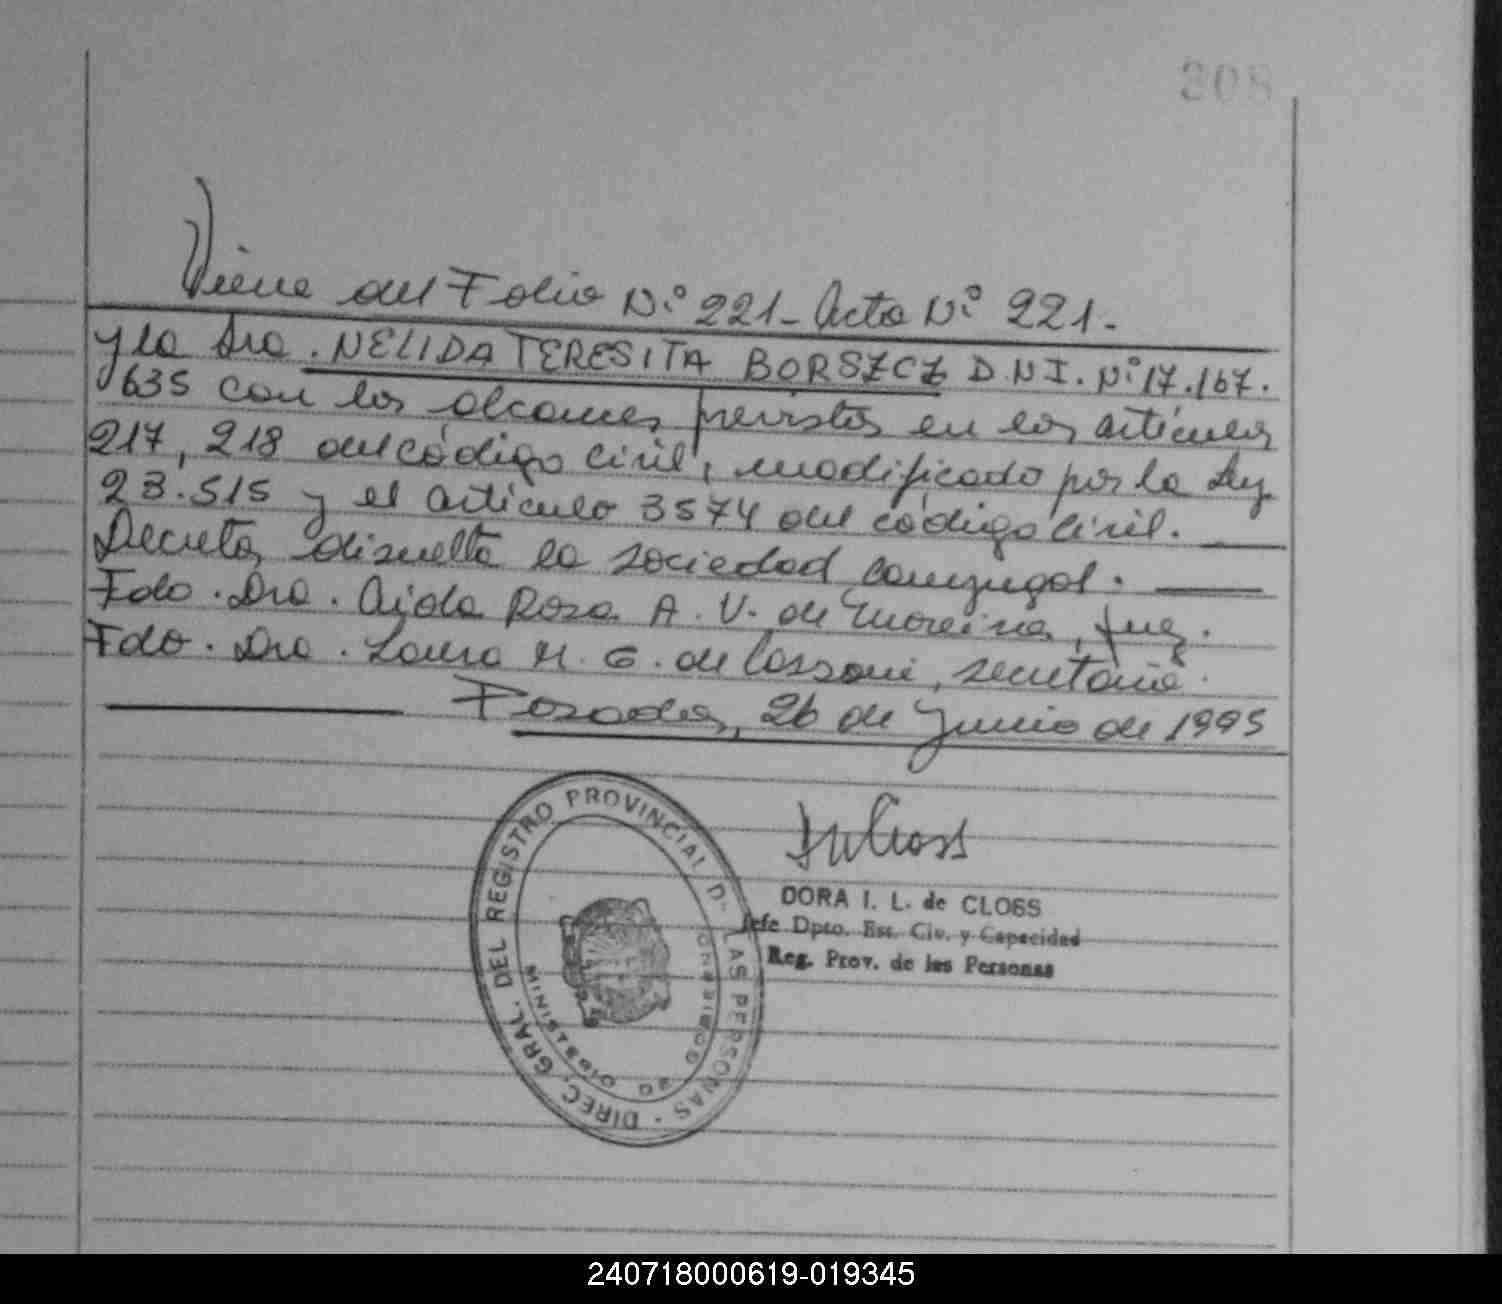 308
Viene del Folio N.º 221 - Acta N.º 221 -
y la Sra. NELIDA TERESITA BORSZCZ D.N.I. Nº 17.167.
635 con los alcances previstos en los artículos
217, 218 del código civil, modificado por la Ley
23.515 y el artículo 3574 del código civil.
Decreta disuelta la sociedad conyugal.
Fdo. Dra. Aida Rosa A. V. de Moreira, Juez.
Fdo. Dra. Laura M. G. de Cassoni, secretaria.
Posadas, 26 de Junio de 1995
DIREC. GRAL. DEL REGISTRO PROVINCIAL DE LAS PERSONAS -
MINISTERIO DE GOBIERNO
DORA I. L. de CLOSS
Jefe Dpto. Est. Civ. y Capacidad
Reg. Prov. de las Personas
240718000619-019345